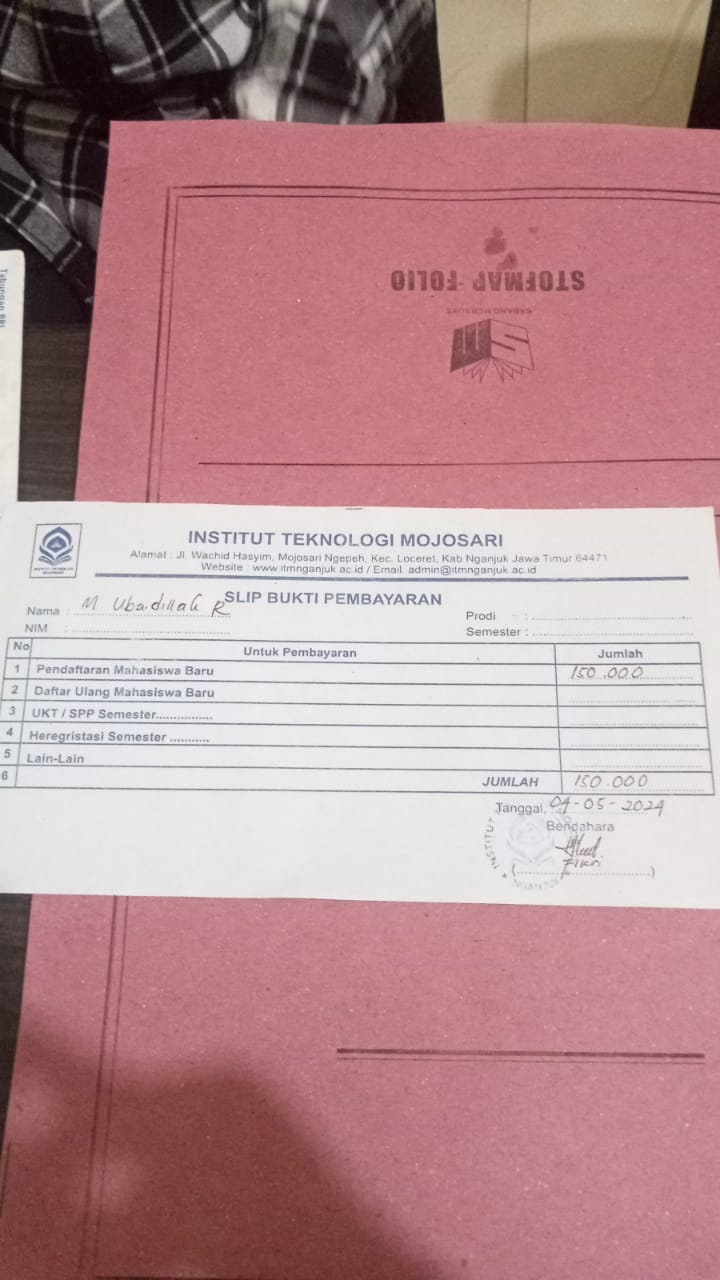 STOFMAP FOLIO
SABANG MERAUKE
SM
Tabungan BRI
INSTITUT TEKNOLOGI MOJOSARI
Alamat : Jl. Wachid Hasyim, Mojosari Ngepeh, Kec. Loceret, Kab Nganjuk Jawa Timur 64471
Website : www.itmnganjuk.ac.id / Email. admin@itmnganjuk.ac.id
SLIP BUKTI PEMBAYARAN
Nama : M. Ubaidillah R
Prodi :
NIM :
Semester :
No Untuk Pembayaran Jumlah
1 Pendaftaran Mahasiswa Baru 150.000
2 Daftar Ulang Mahasiswa Baru
3 UKT / SPP Semester................
4 Heregristasi Semester ...........
5 Lain-Lain
6 JUMLAH 150.000
Tanggal, 04-05-2024
Bendahara
INSTITUT
NGANJUK
Fikri